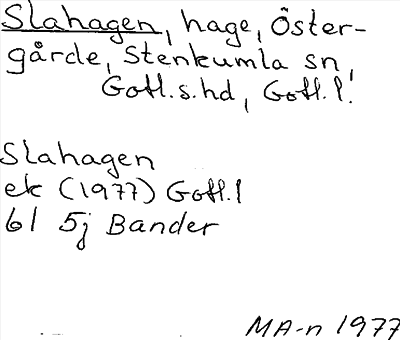 Slahagen, hage, Öster-
gårde, Stenkumla sn,
Gotl.s.hd, Gotl.l.
Slahagen
ek (1977) Gotl.l
bl 5j Bander
MA-n 1977